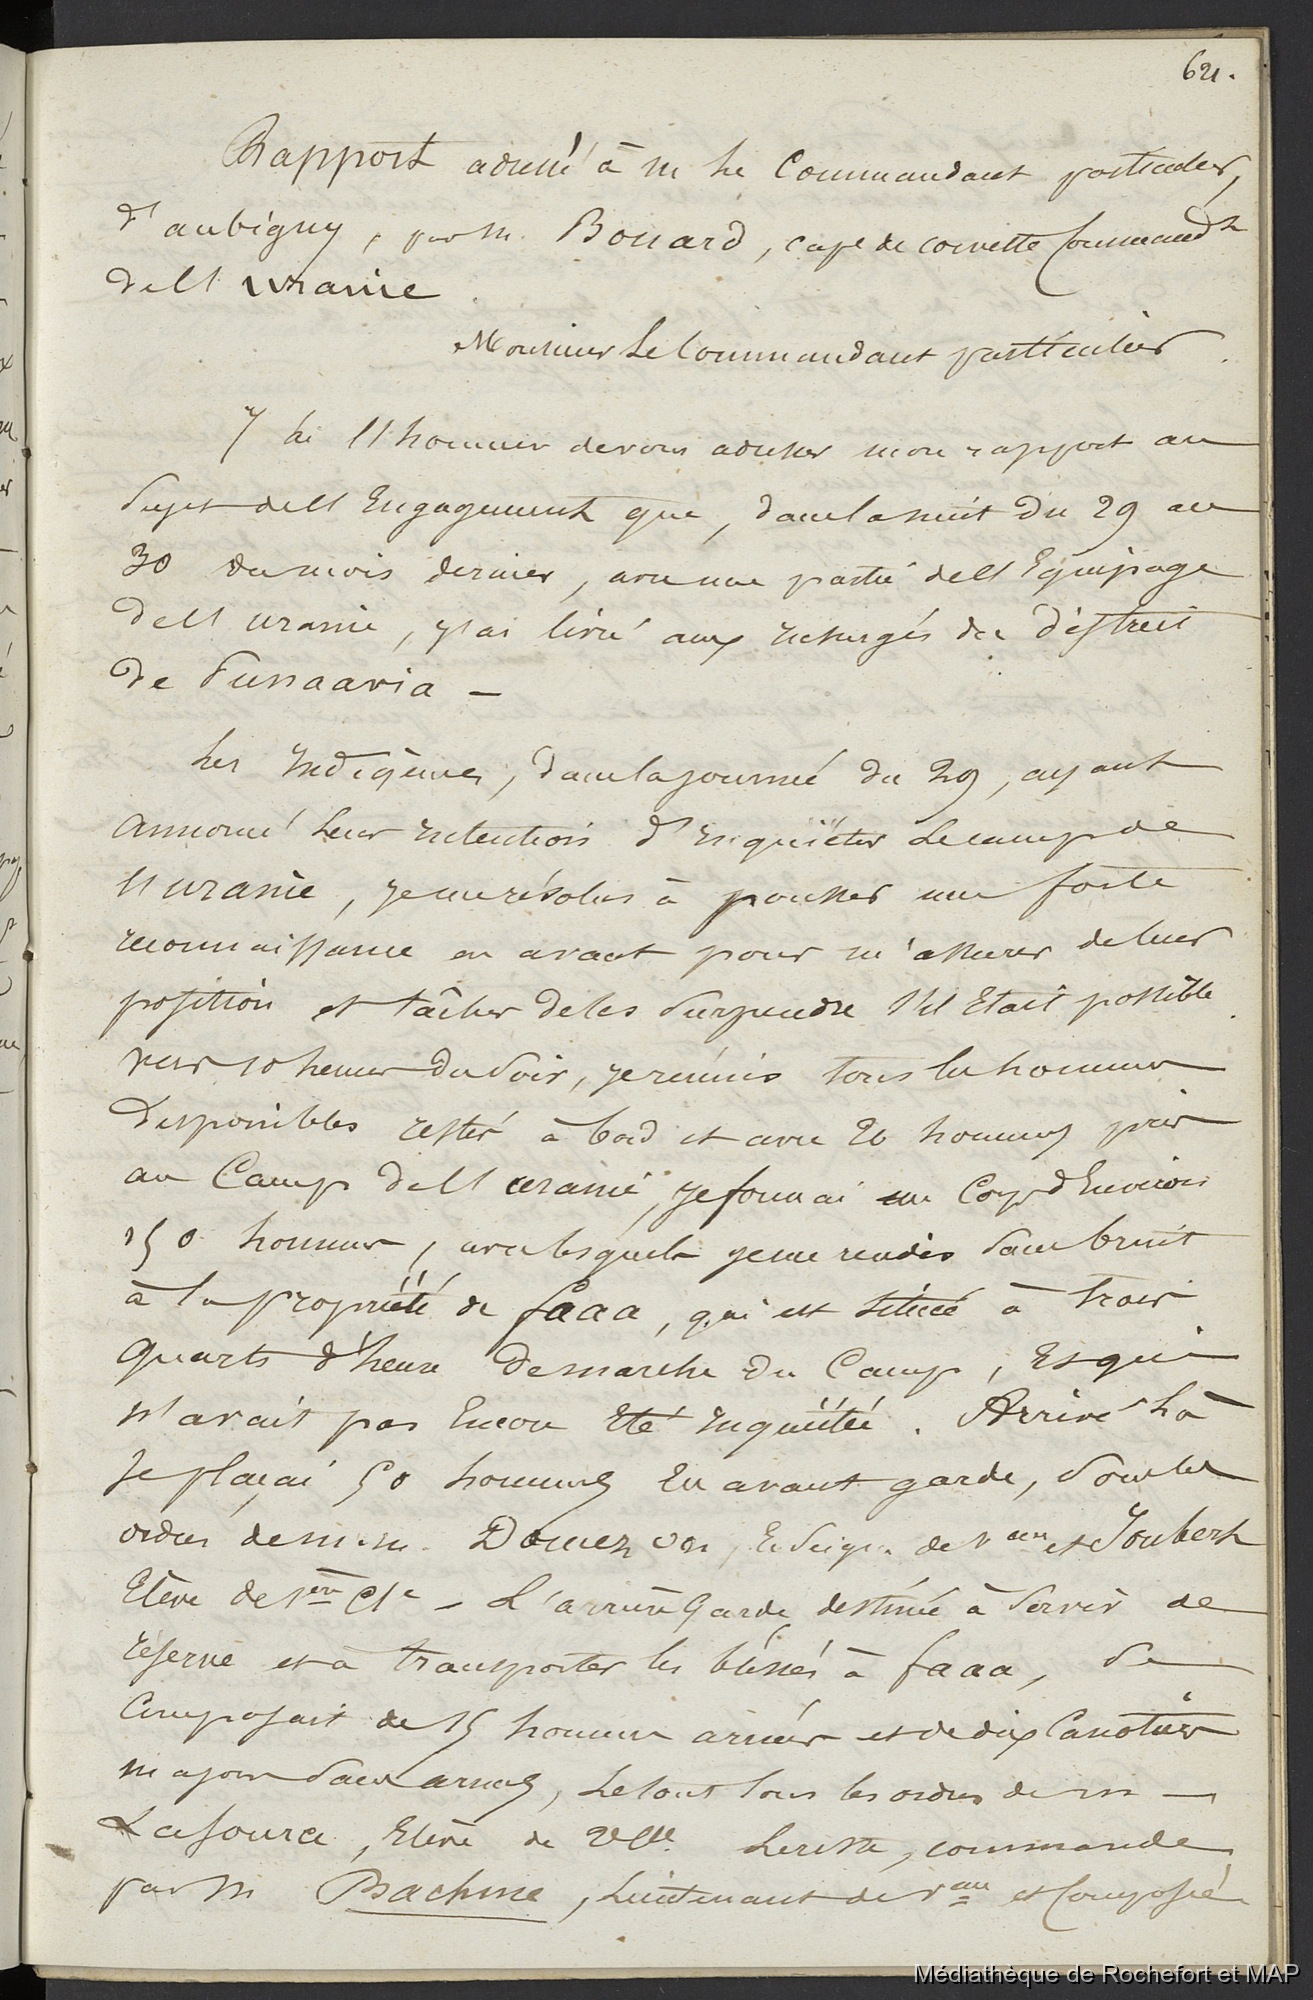 621.
Rapport adressé à M Le Commandant particulier,
d'aubigny, par M. Bonard, cap^e de corvette Command^t
de l'uranie
Monsieur Le Commandant particulier.
J'ai l'honneur de vous adresser mon rapport au
Sujet de l'Engagement que, dans la nuit du 29 au
30 du mois dernier, avec une partie de l'Equipage
de l'uranie, j'ai livré aux insurgés du district
de Punaavia —
Les indigènes, dans la journée du 29, ayant
annoncé leur intention d'inquiéter Le camp de
l'uranie, je me résolus à pousser une forte
reconnaissance en avant pour m'assurer de leur
position et tâcher de les Surprendre s'il Etait possible.
vers 10 heures du Soir, je réunis tous les hommes
disponibles restés à bord et avec 20 hommes pris
au Camp de l'uranie, je formai un Corps d'Environ
150 hommes, avec lesquels je me rendis Sans bruit
à la propriété de faaa, qui est située à trois
quarts d'heure de marche du Camp, Et qui
n'avait pas Encore Eté inquiétée. Arrivé là
Je plaçai 50 hommes En avant garde, Sous les
ordres de M.M. Enseigne de v^eau et Joubert
Elève de 1^ère Cl^e — L'arrière Garde destinée à Servir de
réserve et à transporter les blessés à faaa, Se
Composait de 15 hommes armés et de dix Canotiers
major Sans armes, Le tout Sous les ordres de M —
Lafource, Elève de 2^e Cl^e. Le reste, commandé
par M Bachme, Lieutenant de v^eau et Composé
Médiathèque de Rochefort et MAP